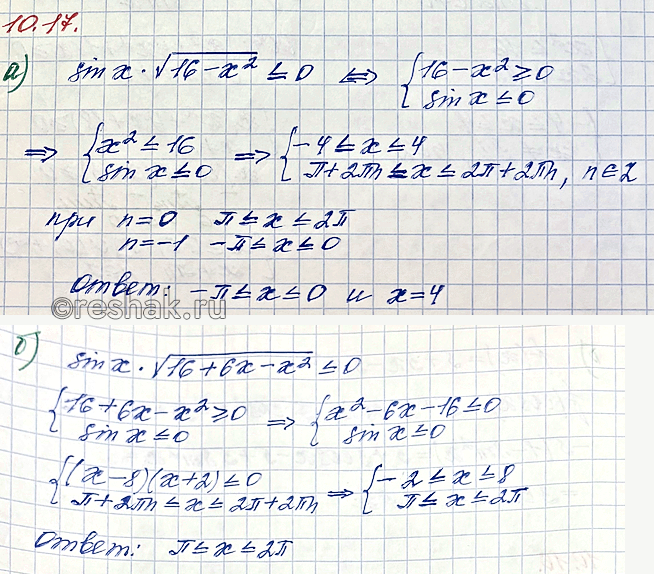 10.17.
а) sin x · √(16-x²) ≤ 0 ⇔ { 16-x² ≥ 0
sin x ≤ 0
⇒ { x² ≤ 16 ⇒ { -4 ≤ x ≤ 4
sin x ≤ 0 π+2πn ≤ x ≤ 2π+2πn, n∈Z
при n=0 π ≤ x ≤ 2π
n=-1 -π ≤ x ≤ 0
Ответ: -π ≤ x ≤ 0 и x=4
©reshak.ru
б) sin x · √(16+6x-x²) ≤ 0
{ 16+6x-x² ≥ 0 ⇒ { x²-6x-16 ≤ 0
sin x ≤ 0 sin x ≤ 0
{ (x-8)(x+2) ≤ 0 ⇒ { -2 ≤ x ≤ 8
π+2πn ≤ x ≤ 2π+2πn π ≤ x ≤ 2π
Ответ: π ≤ x ≤ 2π